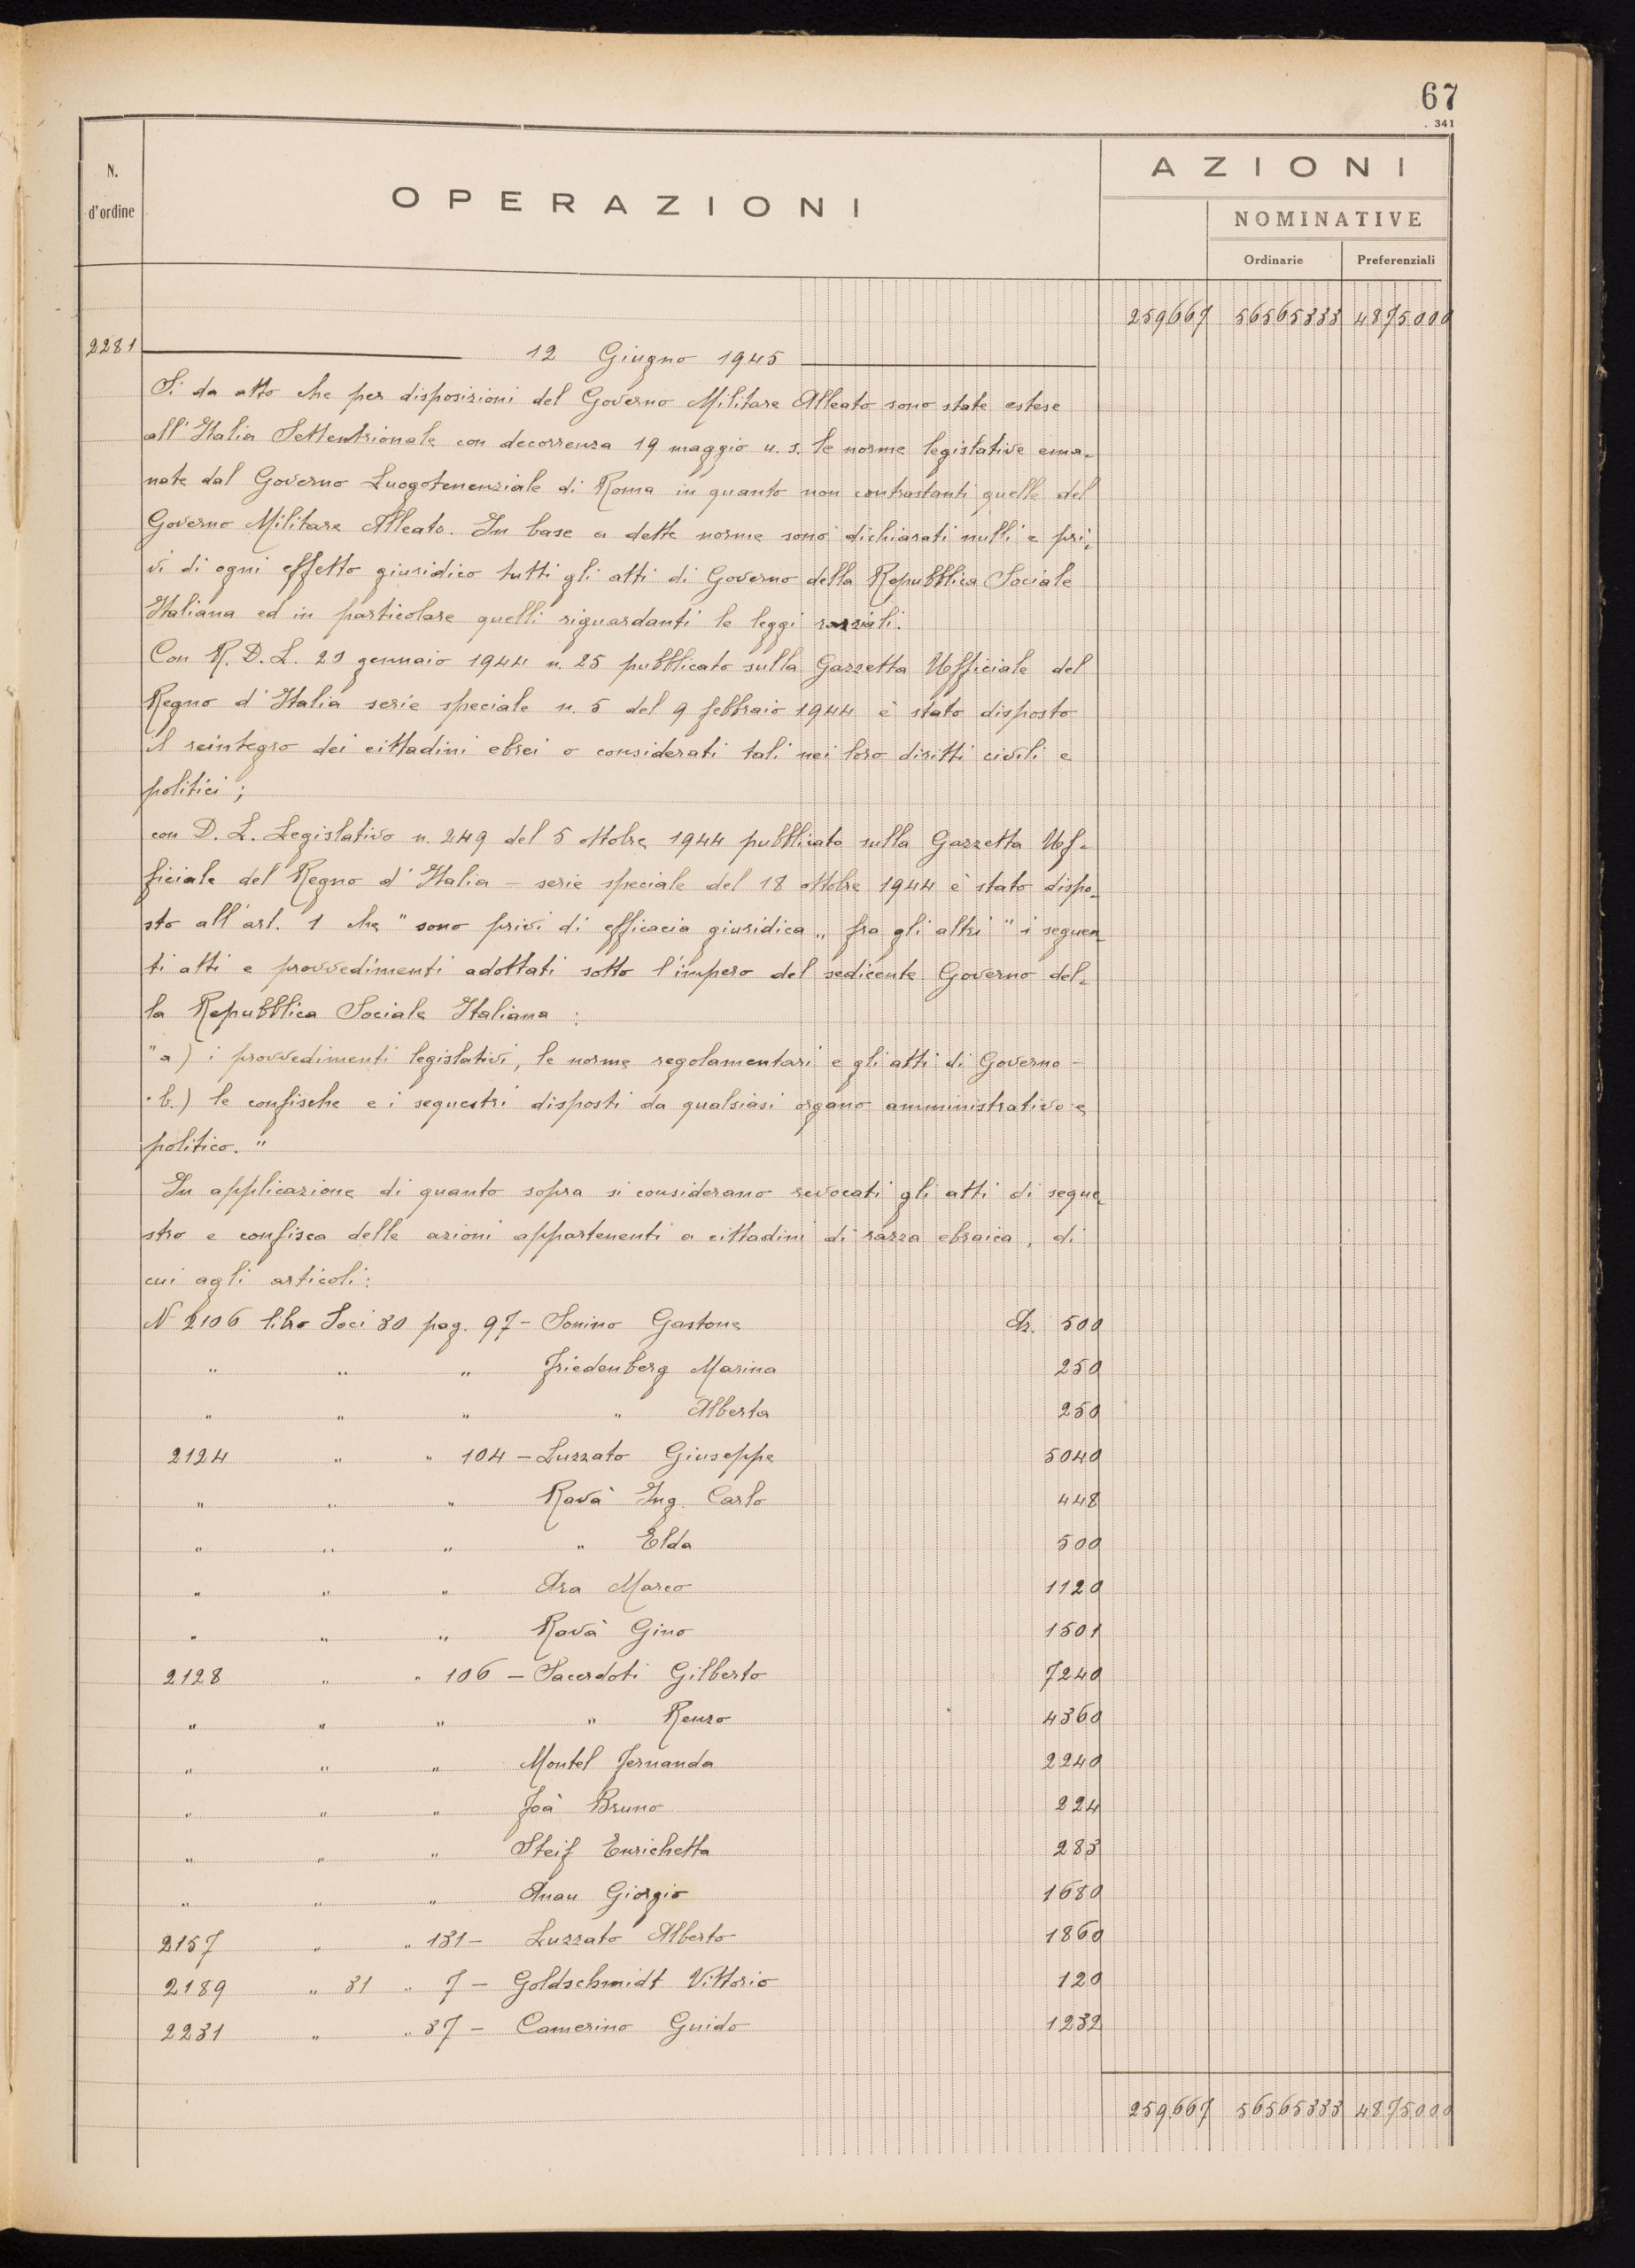 67
341
N. d'ordine
OPERAZIONI
AZIONI
NOMINATIVE
Ordinarie Preferenziali
259667 56565333 4875000
2281 12 Giugno 1945
Si da atto che per disposizioni del Governo Militare Alleato sono state estese
all'Italia Settentrionale con decorrenza 19 maggio u. s. le norme legislative ema-
nate dal Governo Luogotenenziale di Roma in quanto non contrastanti quelle del
Governo Militare Alleato. In base a dette norme sono dichiarati nulli e pri-
vi di ogni effetto giuridico tutti gli atti di Governo della Repubblica Sociale
Italiana ed in particolare quelli riguardanti le leggi razziali.
Con R. D. L. 20 gennaio 1944 n. 25 pubblicato sulla Gazzetta Ufficiale del
Regno d'Italia serie speciale n. 5 del 9 febbraio 1944 è stato disposto
il reintegro dei cittadini ebrei o considerati tali nei loro diritti civili e
politici ;
con D. L. Legislativo n. 249 del 5 ottobre 1944 pubblicato sulla Gazzetta Uf-
ficiale del Regno d'Italia - serie speciale del 18 ottobre 1944 è stato dispo-
sto all'art. 1 che " sono privi di efficacia giuridica „ fra gli altri " i seguen-
ti atti e provvedimenti adottati sotto l'impero del sedicente Governo del-
la Repubblica Sociale Italiana :
" a) i provvedimenti legislativi, le norme regolamentari e gli atti di Governo -
" b.) le confische e i sequestri disposti da qualsiasi organo amministrativo e
politico. "
In applicazione di quanto sopra si considerano revocati gli atti di seque-
stro e confisca delle azioni appartenenti a cittadini di razza ebraica, di
cui agli articoli :
N 2106 libro Soci 30 pag. 97 - Sonino Gastone Az. 500
" " " Friedenberg Marina 250
" " " " Alberta 250
2124 " " 104 - Luzzato Giuseppe 5040
" " " Ravà Ing. Carlo 448
" " " " Elda 500
" " " Ara Marco 1120
" " " Ravà Gino 1501
2128 " " 106 - Sacerdoti Gilberto 7240
" " " " Renzo 4360
" " " Montel Fernanda 2240
" " " Foà Bruno 224
" " " Steif Enrichetta 283
" " " Anau Giorgio 1680
2157 " " 131 - Luzzato Alberto 1860
2189 " 31 " 7 - Goldschmidt Vittorio 120
2231 " " 37 - Camerino Guido 1232
259667 56565333 4875000